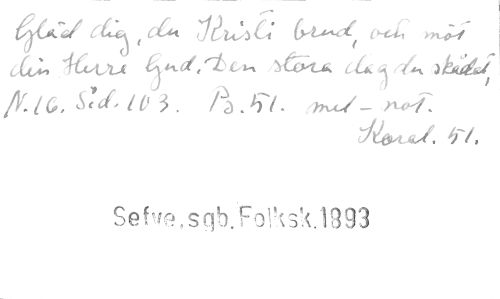 Gläd dig, du Kristi brud, och möt
din Herre Gud. Den stora dag du skådat,
N. 16. Sid. 103. Ps. 51. mel-not.
Koral. 51.
Sefve, sgb. Folksk. 1893